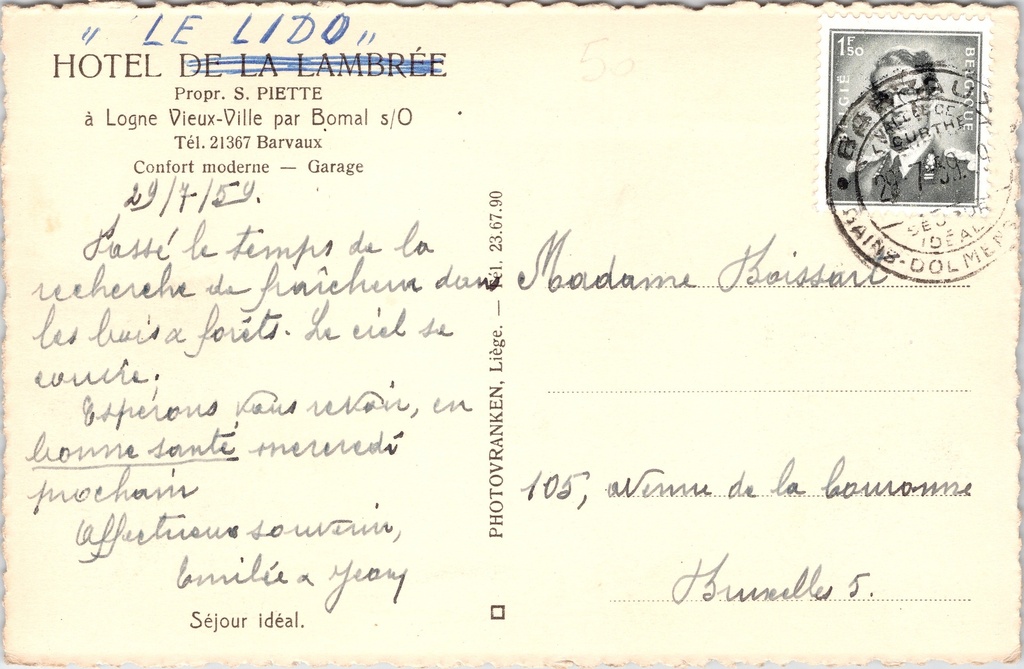 „ LE LIDO „
HOTEL DE LA LAMBRÉE
Propr. S. PIETTE
à Logne Vieux-Ville par Bomal s/O
Tél. 21367 Barvaux
Confort moderne — Garage
29/7/59.
Passé le temps de la
recherche de fraîcheur dans
les bois & forêts. Le ciel se
couvre.
Espérons vous revoir, en
bonne santé mercredi
prochain
Affectueux souvenir,
Emilie &
Séjour idéal.
PHOTOVRANKEN, Liège. — Tél. 23.67.90
50
1F50
BELGIË BELGIQUE
BARVAUX
VALLEE DE
OURTHE
29 -7 59
SEJOUR
IDEAL
BAINS-DOLMENS
Madame Boissart
105, avenue de la Couronne
Bruxelles 5.